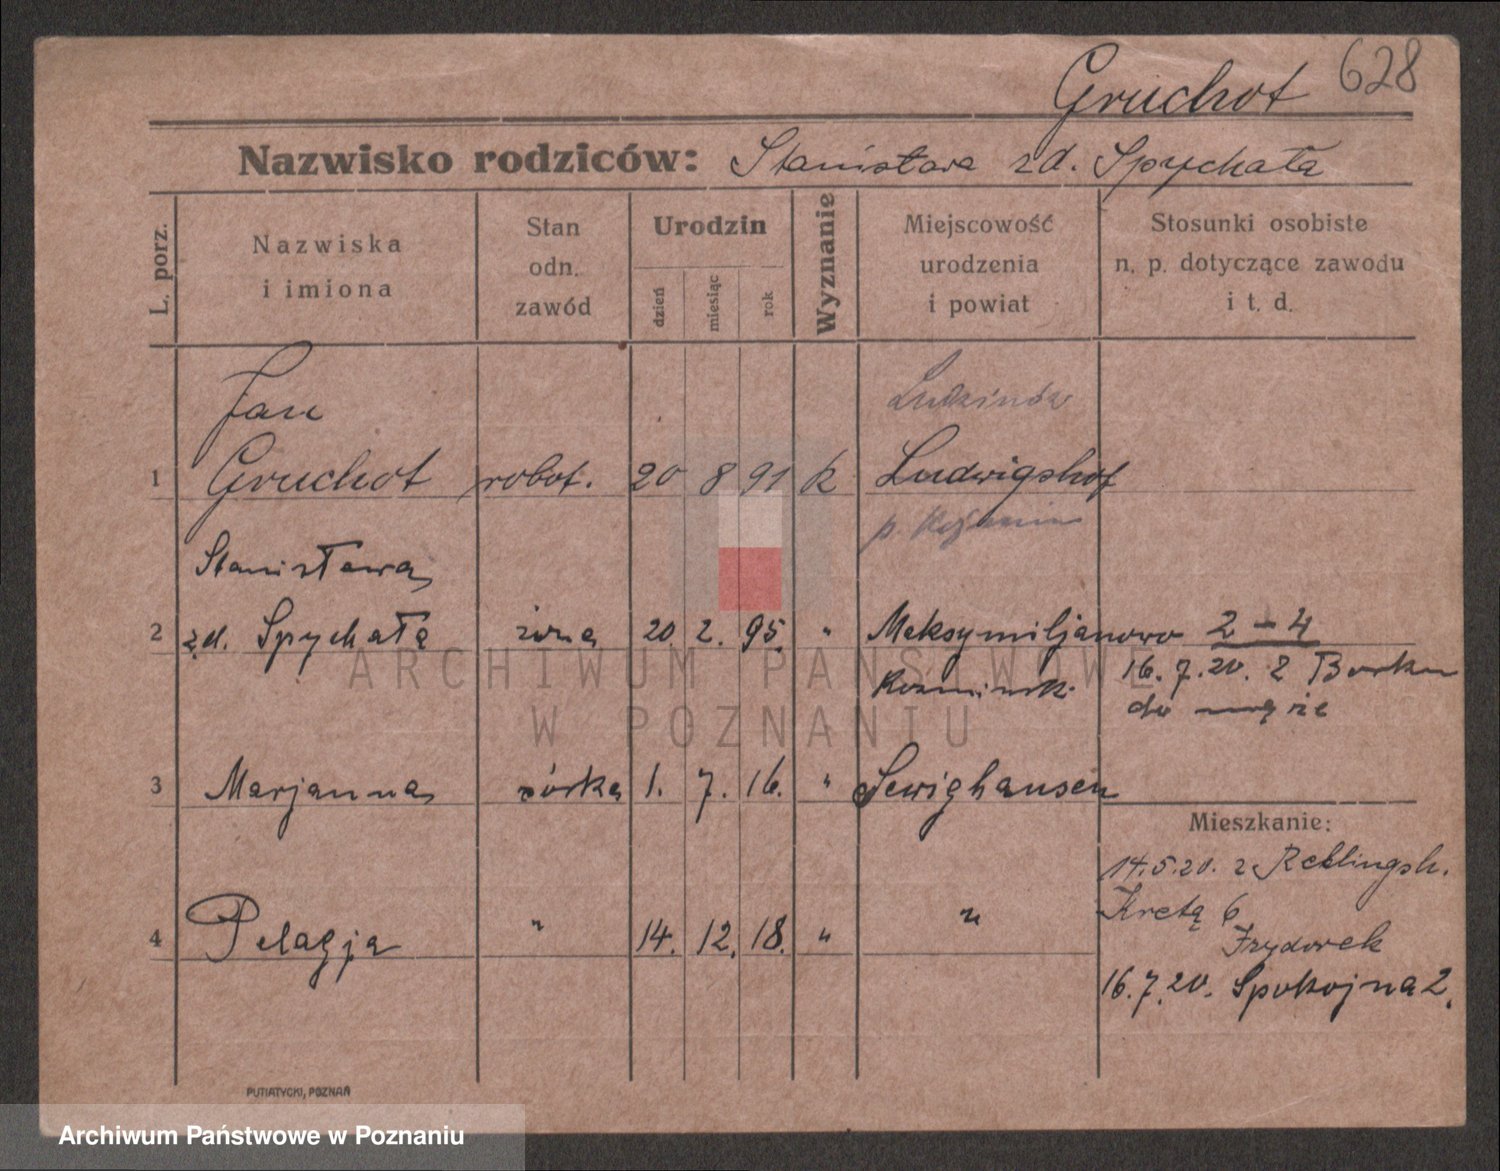 Gruchot 628
Nazwisko rodziców: Stanisława zd. Spychała
L. porz.
Nazwiska
i imiona
Stan
odn.
zawód
Urodzin
dzień
miesiąc
rok
Wyznanie
Miejscowość
urodzenia
i powiat
Stosunki osobiste
n. p. dotyczące zawodu
i t. d.
Jan
Ludzinów
1 Gruchot robot. 20 8 91 k Ludwigshof
p.
Stanisława
2 zd. Spychała żona 20. 2. 95. " Maksymiljanowo 2-4
16.7.20. z Borku
Kozminsk.
do męża
3 Marjanna córka 1. 7. 16. " Sewighausen
Mieszkanie:
14.5.20. z Reklingsh.
Kretą 6
4 Pelagja " 14. 12. 18. " "
16.7.20. Spokojna 2.
PUTIATYCKI, POZNAŃ
ARCHIWUM PAŃSTWOWE
W POZNANIU
Archiwum Państwowe w Poznaniu